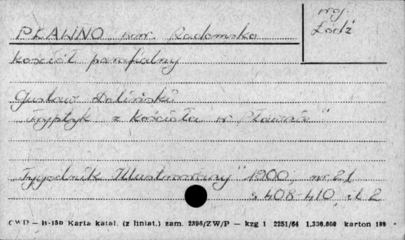 PŁAWNO pow. Radomsko
woj. Łódź
kościół parafialny
Gustaw Doliński
"Tryptyk z kościoła w Pławnie"
"Tygodnik Illustrowany" 1900, nr 21
s. 408-410, il. 2
CWD — B-15D Karta katal. (z liniat.) zam. 2396/ZW/P — kzg 1 2251/64 1.330.000 karton 180